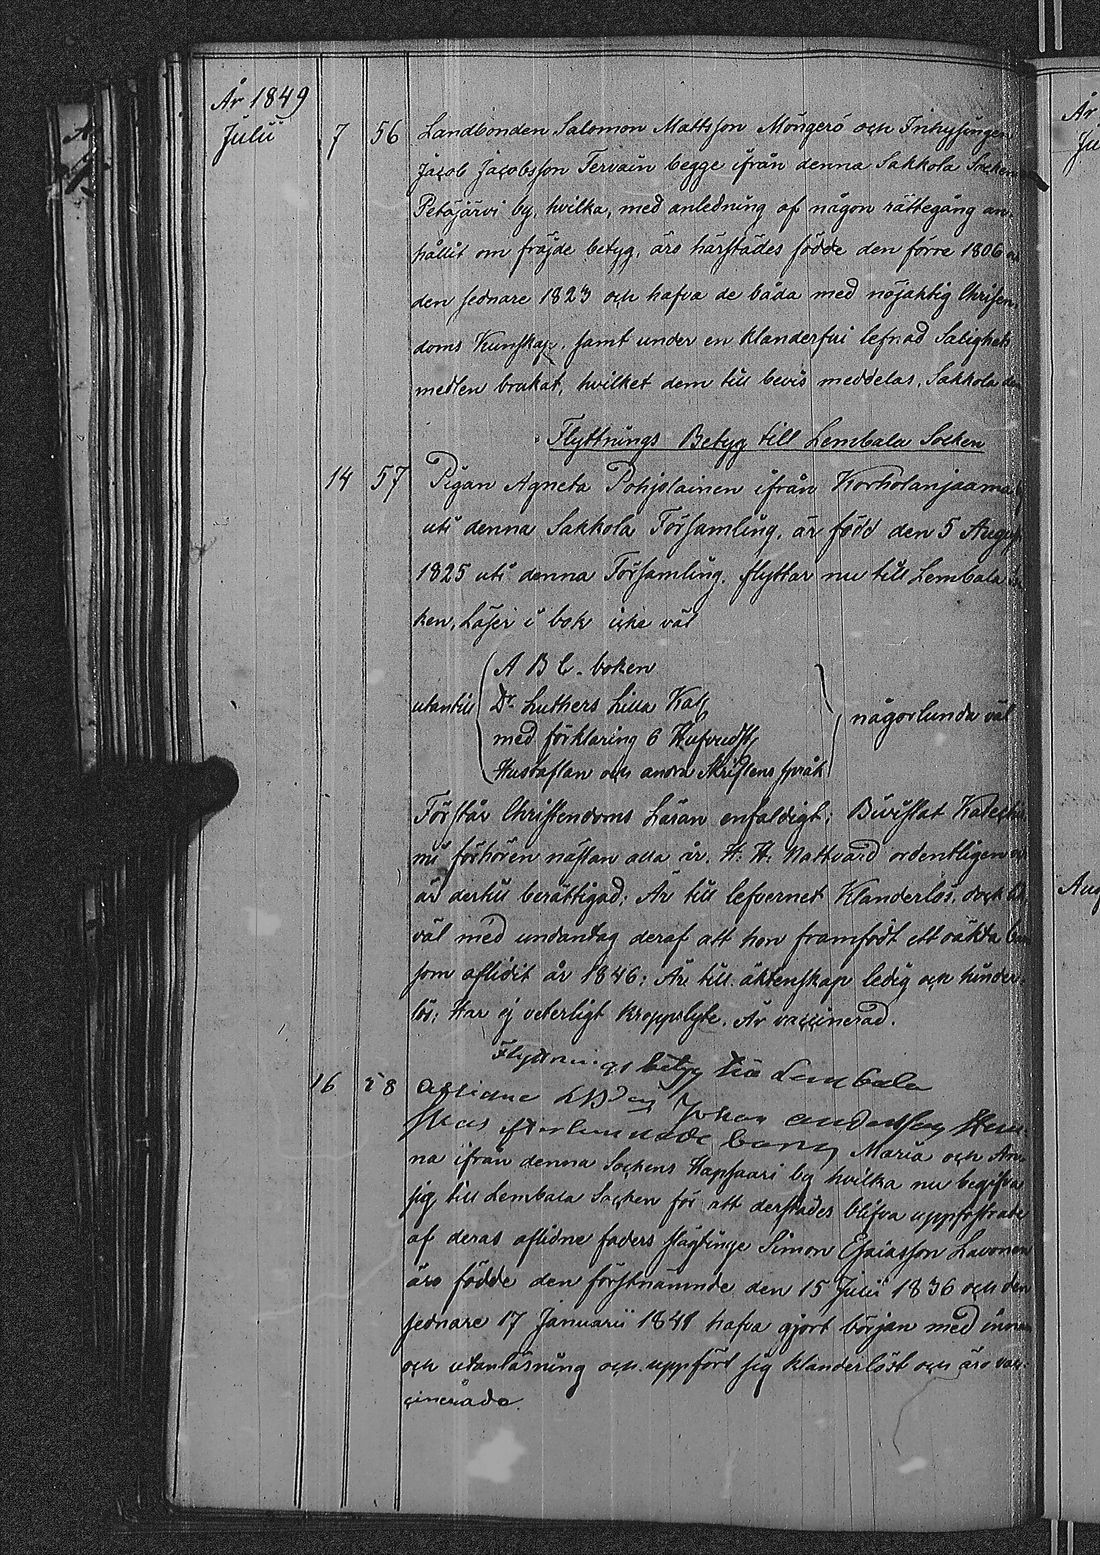 År 1849
Julii 7 56 Landbonden Salomon Mattsson Möngerö och Inhysingen
Jacob Jacobsson Tervain begge ifrån denna Sakkola Socken
Petäjärvi by, hvilka, med anledning af någon rättegång an-
hållit om fräjde betyg, äro härstädes födde den förre 1806
den sednare 1823 och hafva de båda med nöjaktig Christen-
doms Kunskap, samt under en klanderfri lefnad Salighets
medlen brukat, hvilket dem till bevis meddelas, Sakkola
Flyttnings Betyg till Lembala Socken
14 57 Pigan Agneta Pohjolainen ifrån Korholanjaama
uti denna Sakkola Församling, är född den 5 Augusti
1825 uti denna Församling, flyttar nu till Lembala
ken, Läser i bok icke väl
A B C-boken
utantill Dr Luthers Lilla Kat
med förklaring 6 Hufvudst,
Hustaflan och andra Skriftens språk någorlunda väl
Förstår Christendoms Läran enfaldigt; Bivistat Katechis
mi förhören nästan alla år, H: H: Nattvard ordentligen
är dertill berättigad; Är till lefvernet Klanderlös, dock
väl med undantag deraf att hon framfödt ett oäkta
som aflidit år 1846; Är till äktenskap ledig och hinder-
lös; Har ej veterligt kroppslyte. Är vaccinerad.
Flyttnings betyg till Lembala
16 58 Aflidne Johan Andersson
efterlemnade barn, Maria och An-
na ifrån denna Sockens Hapsaari by hvilka nu begifva
sig till Lembala Socken för att derstädes blifva uppfostrade
af deras aflidne faders slägtinge Simon Esaiasson Lavonen
äro födde den förstnämnde den 15 Julii 1836 och den
sednare 17 Januarii 1841 hafva gjort början med innan
och utanläsning och uppfört sig klanderlöst och äro vac-
cinerade.
Aug